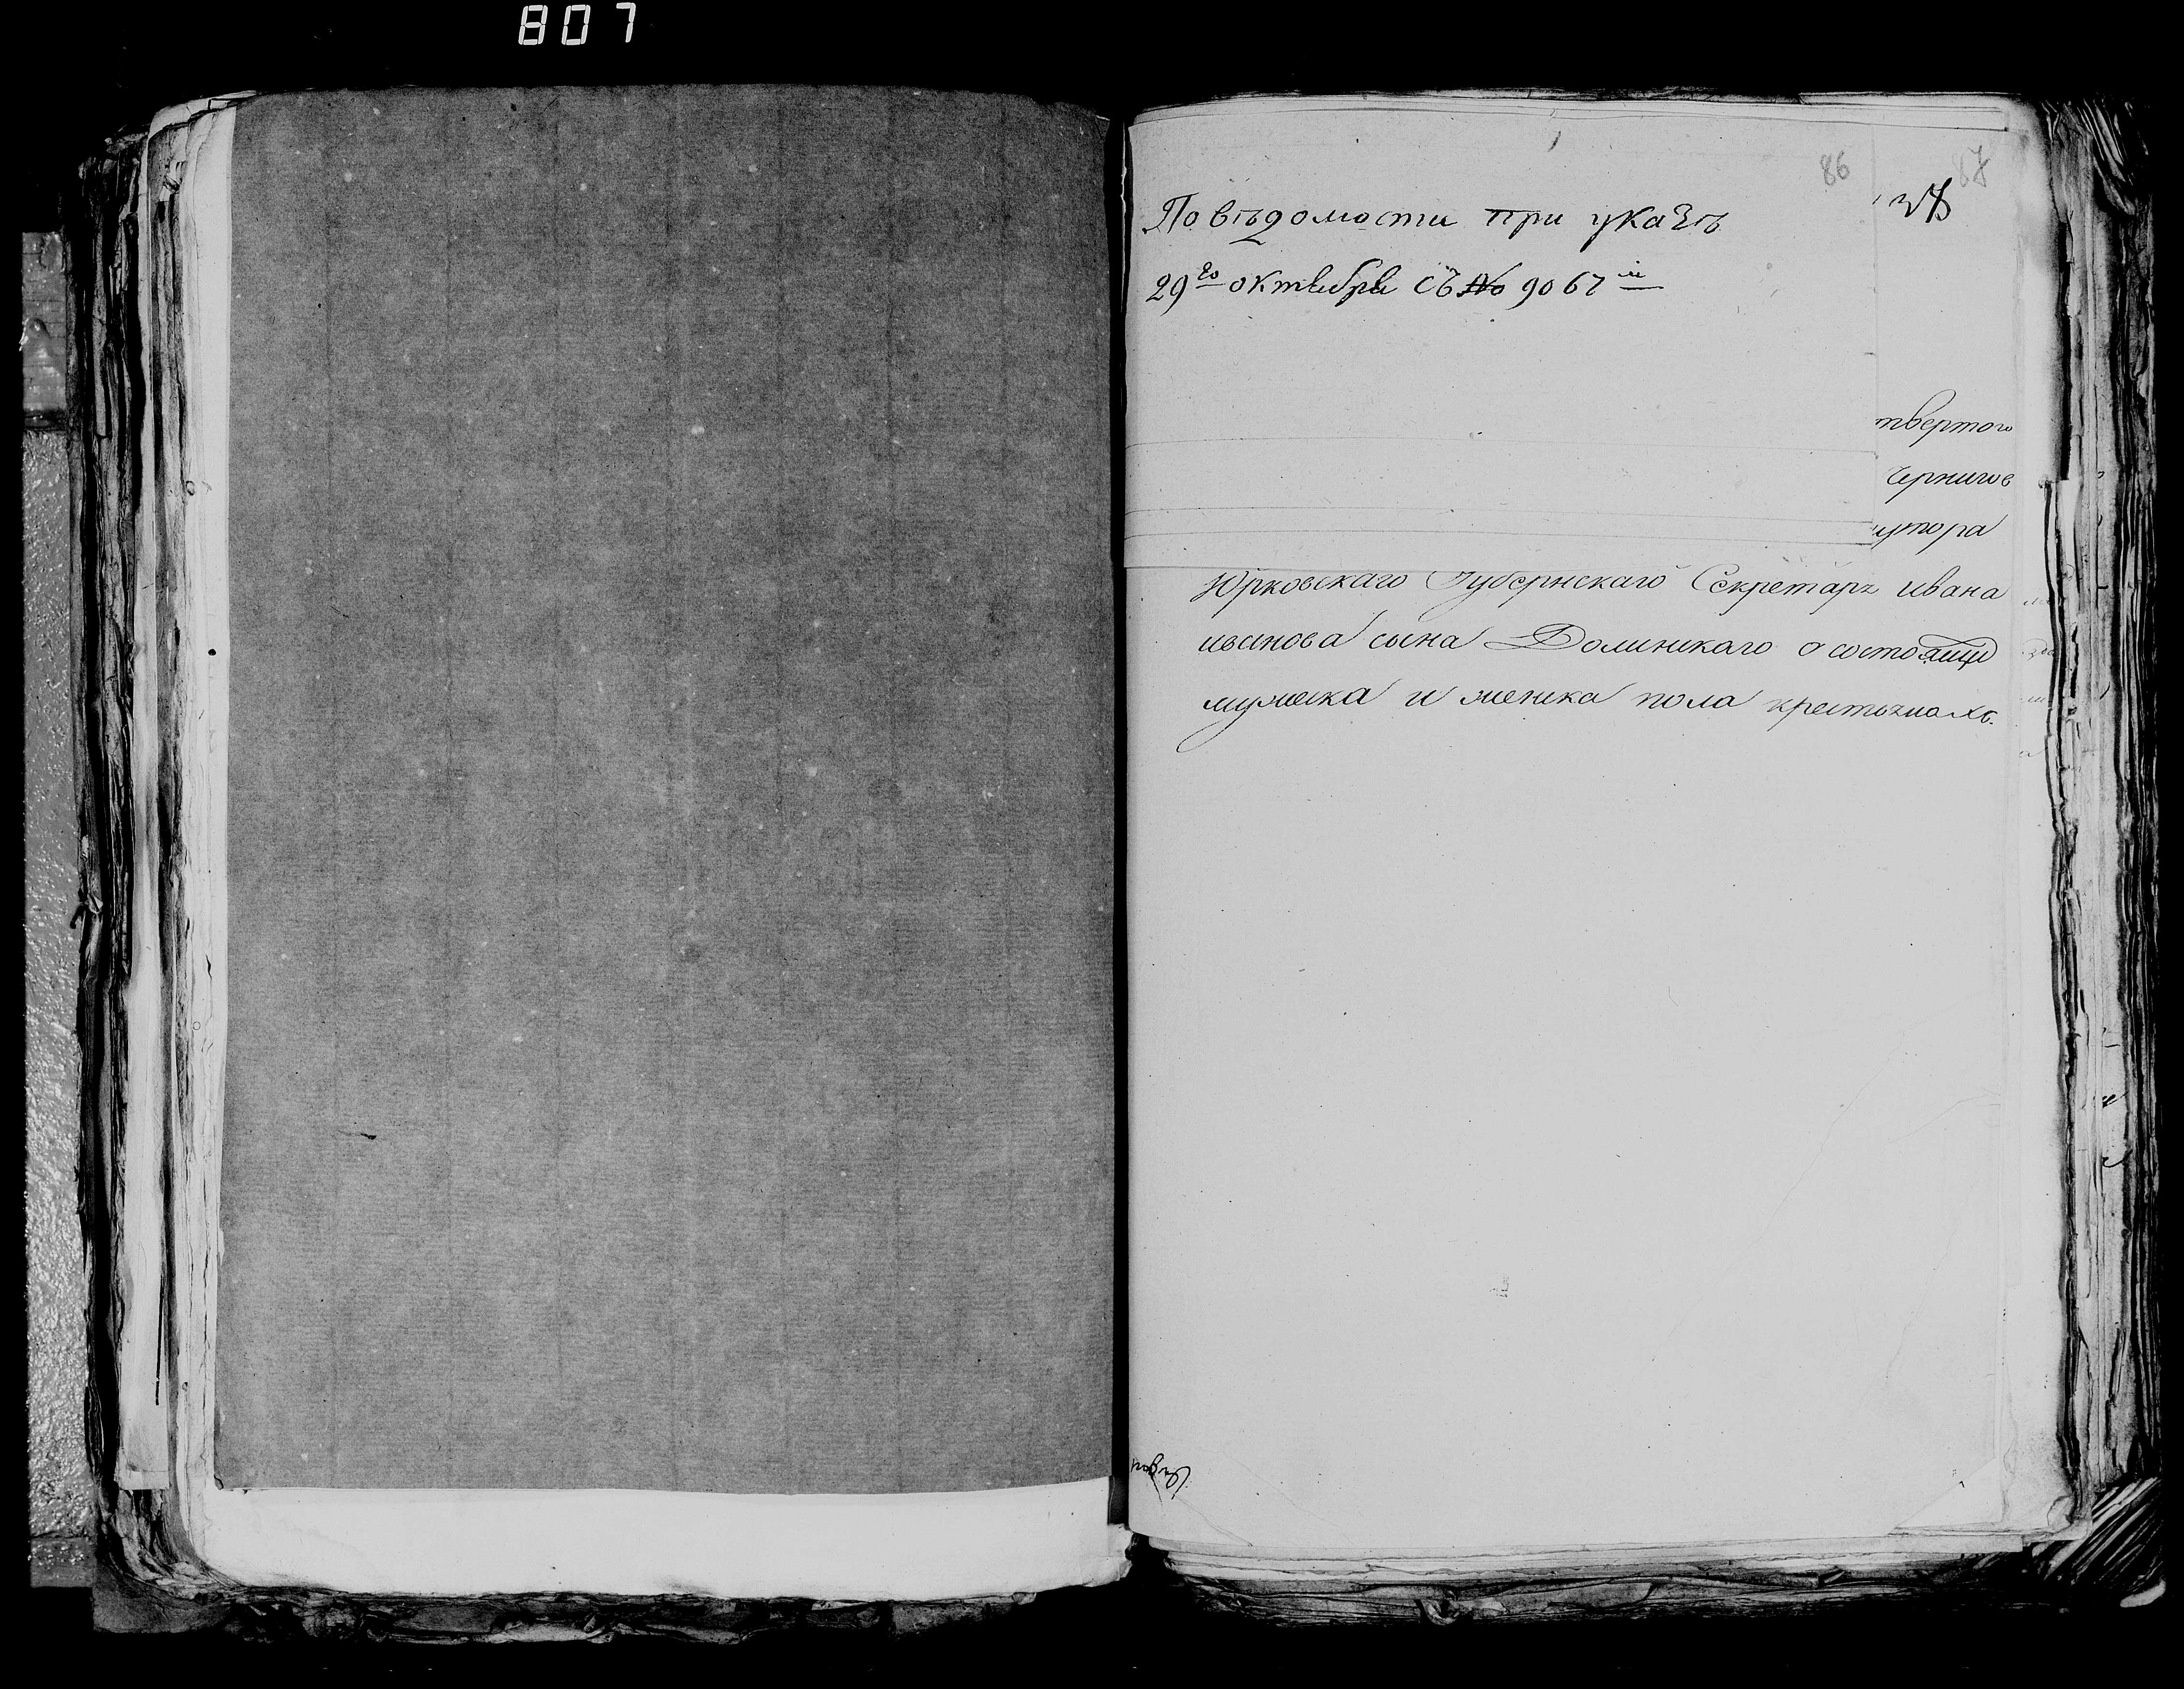 807
86
87
По вѣдомости при указѣ
29го октября съ № 9067м
твертого
Чернигов
утора
Юрковскаго Губернскаго Секретаря ивана
иванова сына Долинскаго о состоящи
мужеска и женска пола крестьянахъ.